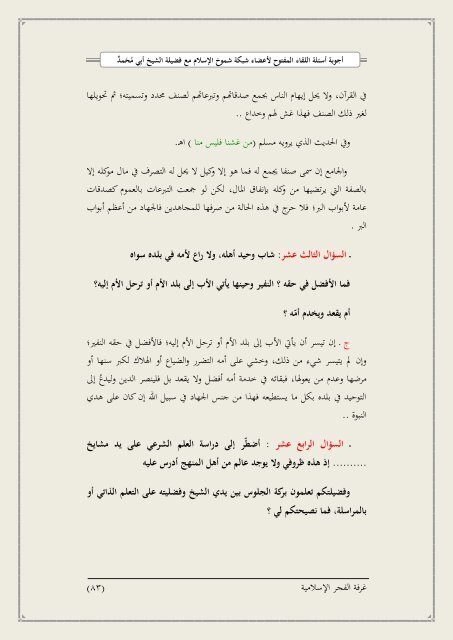 أجوبة أسئلة اللقاء المفتوح لأعضاء شبكة شموخ الإسلام مع فضيلة الشيخ أبي مُحَمدٌ
في القرآن، ولا يحل إيهام الناس بجمع صدقاتهم وتبرعاتهم لصنف محدد وتسميته؛ ثم تحويلها
لغير ذلك الصنف فهذا غش لهم وخداع ..
وفي الحديث الذي يرويه مسلم (من غشنا فليس منا ) اهـ
والجامع إن سمى صنفا يجمع له فما هو إلا وكيل لا يحل له التصرف في مال موكله إلا
بالصفة التي يرتضيها من وكله بإنفاق المال، لكن لو جمعت التبرعات بالعموم كصدقات
عامة لأبواب البر؛ فلا حرج في هذه الحالة من صرفها للمجاهدين فالجهاد من أعظم أبواب
البر .
. السؤال الثالث عشر: شاب وحيد أهله، ولا راع لأمه في بلده سواه
فما الأفضل في حقه ؟ النفير وحينها يأتي الأب إلى بلد الأم أو ترحل الأم إليه؟
أم يقعد ويخدم أمّه ؟
ج . إن تيسر أن يأتي الأب إلى بلد الأم أو ترحل الأم إليه؛ فالأفضل في حقه النفير؛
وإن لم يتيسر شيء من ذلك، وخشي على أمه التضرر والضياع أو الهلاك لكبر سنها أو
مرضها وعدم من يعولها، فبقائه في خدمة أمه أفضل ولا يقعد بل فلينصر الدين وليدعُ إلى
التوحيد في بلده بكل ما يستطيعه فهذا من جنس الجهاد في سبيل الله إن كان على هدي
النبوة ..
. السؤال الرابع عشر : أضطَر إلى دراسة العلم الشرعي على يد مشايخ
.......... إذ هذه ظروفي ولا يوجد عالم من أهل المنهج أدرس عليه
وفضيلتكم تعلمون بركة الجلوس بين يدي الشيخ وفضليته على التعلم الذاتي أو
بالمراسلة، فما نصيحتكم لي ؟
غرفة الفجر الإسلامية
(٨٣)